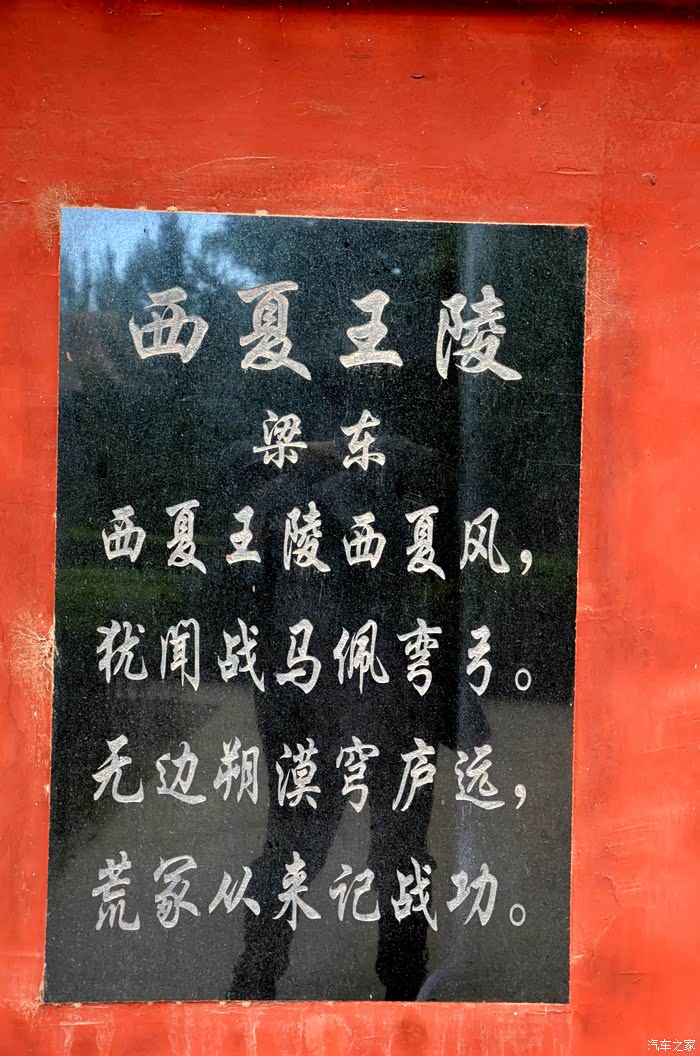 西夏王陵
梁东
西夏王陵西夏风，
犹闻战马佩弯弓。
无边朔漠穹庐远，
荒冢从来记战功。
汽车之家